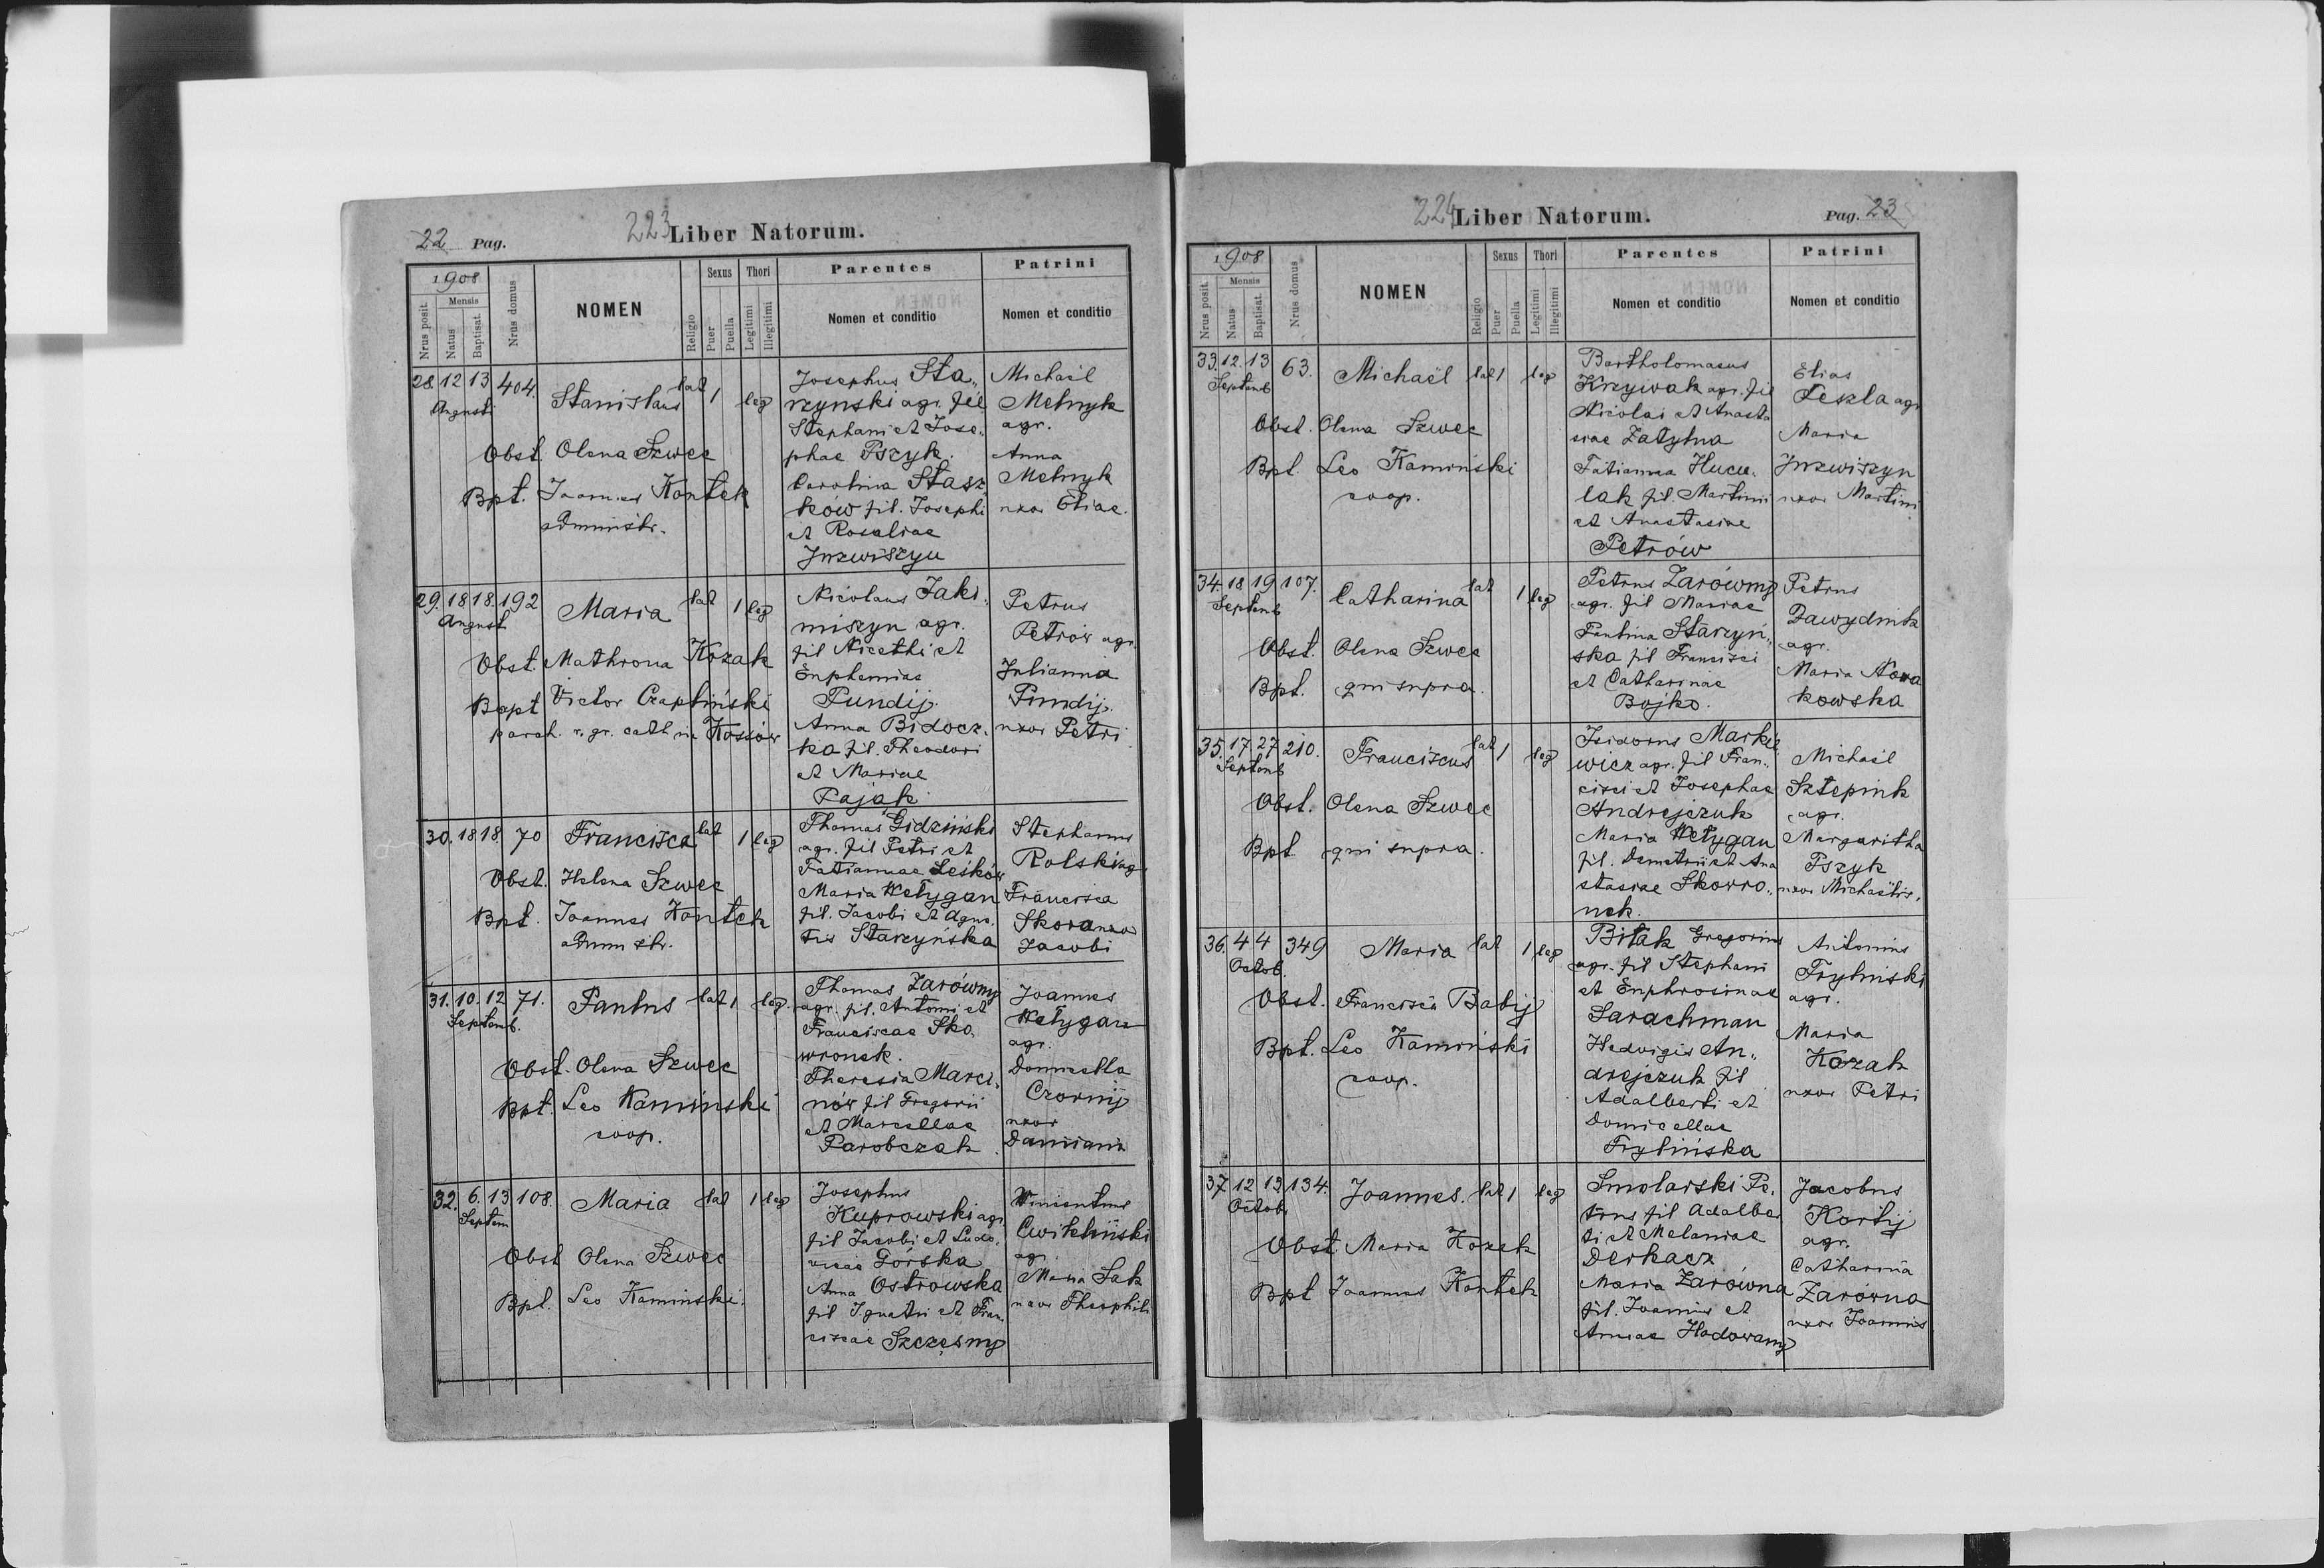 22 Pag.
223
Liber Natorum.
1908
Nrus posit.
Mensis
Natus
Baptisat.
Nrus domus
NOMEN
Religio
Sexus
Puer
Puella
Thori
Legitimi
Illegitimi
Parentes
Nomen et conditio
Patrini
Nomen et conditio
28. 12 13 404. Stanislaus lat 1 leg
Augusti
Obst. Olena Szwec
Bpt. Joannes Kontek
administr.
Josephus Sta„
rzynski agr. fil
Stephani et Jose„
phae Pszyk.
Carolina Stasz„
ków fil. Josephi
et Rosaliae
Jnzwiszyn
Michaël
Melnyk
agr.
Anna
Melnyk
uxor Eliae.
29. 18 18. 192 Maria lat 1 leg
August
Obst. Mathrona Kozak
Bapt Victor Czapliński
paroch. r. gr. cath in Kossów
Nicolaus Jaki„
miszyn agr.
fil Nicethi et
Euphemiae
Pundij.
Anna Bidocz„
ka fil. Theodori
et Mariae
Pająk
Petrus
Petrów agr.
Julianna
Pundij.
uxor Petri
30. 18 18. 70 Francisca lat 1 leg
Obst. Helena Szwec
Bpt. Joannes Kontek
admin str.
Thomas Gidziński
agr. fil Petri et
Tatiannae Leśków
Maria Wełygan
fil. Jacobi et Agne„
tis Starzyńska
Stephanus
Rolski agr
Francisca
Skora uxor
Jacobi
31. 10. 12 71. Paulus lat 1 leg.
Septemb.
Obst. Olena Szwec
Bpt. Leo Kaminski
coop.
Thomas Zarówny
agr. fil. Antonii et
Franciscae Sko„
wronek.
Theresia Marci„
nów fil Gregorii
et Marcellae
Parobczak
Joannes
Wełygan
agr.
Domicella
Czornij
uxor
Damiani
32. 6. 13 108. Maria lat 1 leg
Septem
Obst Olena Szwec
Bpt. Leo Kaminski.
Josephus
Kuprowski agr.
fil Jacobi et Ludo„
vicae Górska
Anna Ostrowska
fil Ignatii et Fran„
ciscae Szczęsny
Vincentius
Cwikliński
agr.
Maria Sak
uxor Theophili
224
Liber Natorum.
Pag. 23
1908
Nrus posit.
Mensis
Natus
Baptisat.
Nrus domus
NOMEN
Religio
Sexus
Puer
Puella
Thori
Legitimi
Illegitimi
Parentes
Nomen et conditio
Patrini
Nomen et conditio
33. 12. 13 63. Michaël lat 1 leg
Septemb
Obst. Olena Szwec
Bpt. Leo Kamiński
coop.
Bartholomaeus
Krzywak agr. fil
Nicolai et Anasta
siae Zatylna
Tatianna Hucu„
lak fil. Martini
et Anastasiae
Petrów
Elias
Tekla agr
Maria
Jnzwiszyn
uxor Martini
34. 18 19 107. Catharina lat 1 leg
Septemb
Obst. Olena Szwec
Bpt. qui supra.
Petrus Zarówny
agr. fil Mariae
Paulina Starzyń„
ska fil Francisci
et Catharinae
Bojko.
Petrus
Dawydink
agr.
Maria Nowa
kowska
35. 17. 27 210. Franciscus lat 1 leg
Septemb
Obst. Olena Szwec
Bpt. qui supra.
Isidorus Markie
wicz agr. fil Fran„
cisci et Josephae
Andrejczuk
Maria Wełygan
fil. Demetrii et Ana
stasiae Skowro„
nek.
Michaël
Sztepink
agr.
Margaritha
Pszyk
uxor Michaëlis.
36. 4 4 349 Maria lat 1 leg
Octob.
Obst. Francisca Babij
Bpt. Leo Kamiński
coop.
Bitak Gregorius
agr. fil Stephani
et Euphrosinae
Sarachman
Hedvigis An„
drejczuk fil
Adalberti et
Domicellae
Trylińska
Antonius
Tryliński
agr.
Maria
Kozak
uxor Petri
37. 12 13 134. Joannes. lat 1 leg
Octob.
Obst. Maria Kozek
Bpt Joannes Kontek
Smolarski Pe„
trus fil Adalber
ti et Melaniae
Derkacz
Maria Zarówna
fil. Joannis et
Annae Hodowany
Jacobus
Kortij
agr.
Catharina
Zarówna
uxor Joannis